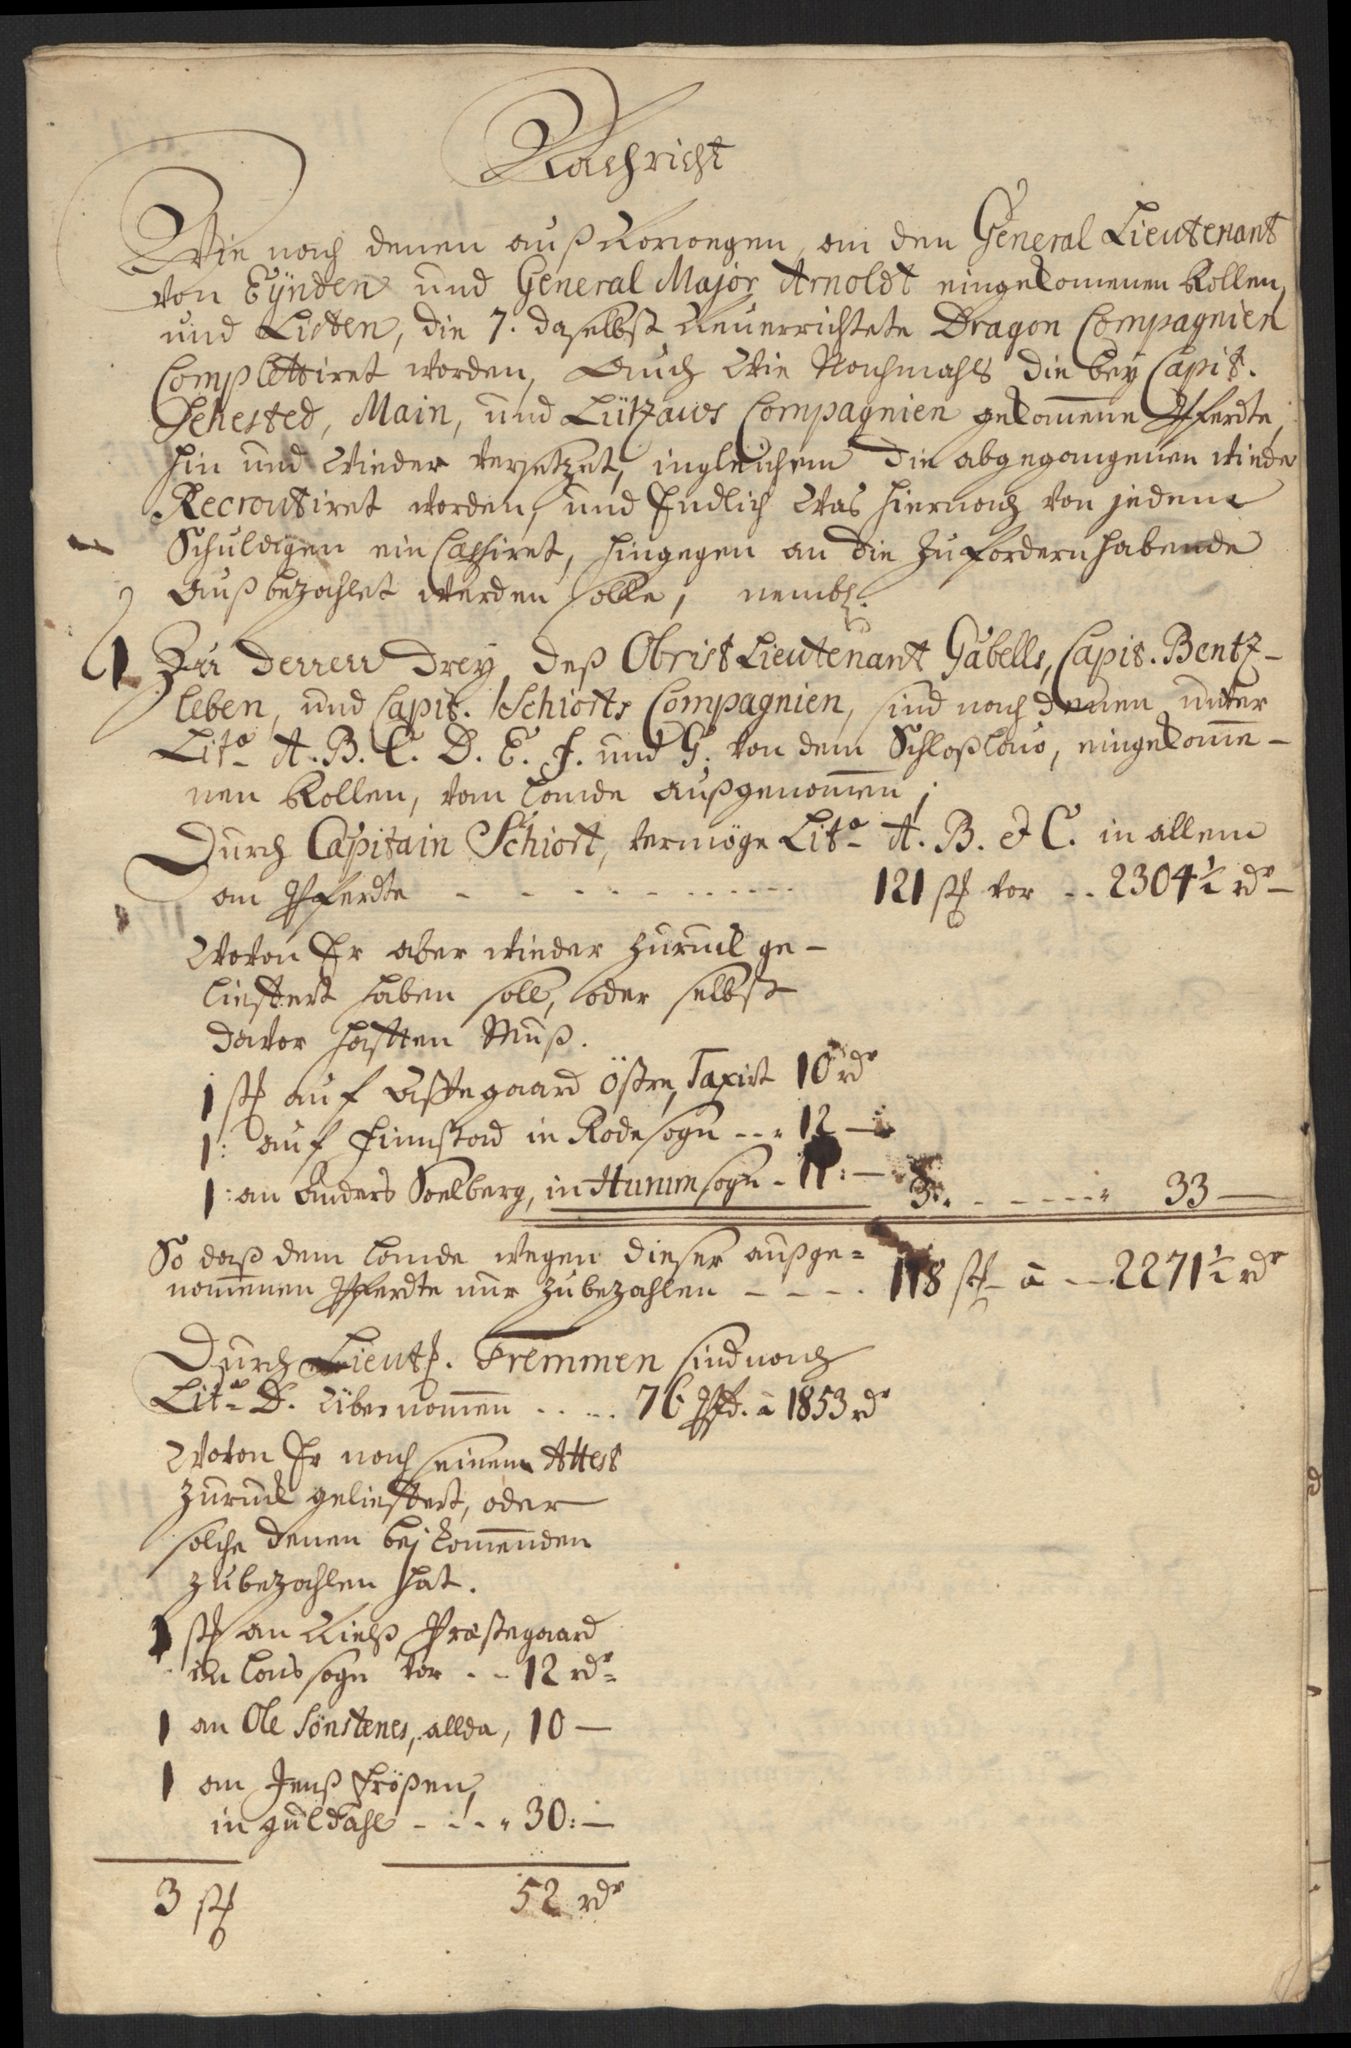 Nachricht
Wie nach denen auß Norwegen, an den General Lieutenant
von Eÿnden und General Major Arnoldt eingekomenen Rollen,
und Listen, die 7. daselbst Neuerrichtete Dragon Compagnien
Complettiret worden, Auch Wie Nachmahls die bey Capit.
Sehested, Main, und Lützaws Compagnien gekomene Pferdte,
hin und Wieder versetzet, ingleichem die abgegangenen wieder
Recroutiret worden, und Endlich Was hiernach von jedem
Schuldigen ein Cassiret, hingegen an die Zufordernhabende
Außbezahlet werden solle, nembl.
1 Zu derren drey, deß Obrist Lieutenant Gabells, Capit. Bentz-
leben, und Capit. Schiorts Compagnien, sind nach denen unter
Litª A. B. C. D. E. F. und G. von dem Schloßlaus, eingekomme-
nen Rollen, vom lande außgenommen;
Durch Capitain Schiort, vermöge Litª A. B. & C. in allem
an Pferdte - - - - - 121 st vor - - 2304½ rdr
Wovon Er aber wieder zurück ge-
lieffert haben soll, oder selbst
davor hafften Muß.
1 st auf Astegaard östre, Taxirt 10 rdr
1: auf Finnstad in Rodesogn - - 12 -
1: an Anders Soelberg, in Hurumsogn - 11: - 3: - - - - 33 -
So daß dem lande wegen dieser außge-
nommenen Pferdte nur zubezahlen - - - - 118 st à - - 2271½ rdr
Durch Lieutn. Tremmen sind nach
Litª D. Übernommen - - - - 76 Pfd. à 1853 rdr
Wovon Er nach seinem Attest
zurück gelieffert, oder
solche denen beÿkommenden
zubezahlen hat.
1 st an Nielß Præstegaard
in laus sogn vor - - 12 rdr
1 an Ole Sönstenes, allda, 10 -
1 an Jenß Frößen,
in guldahl - - - - 30: -
3 st 52 rdr